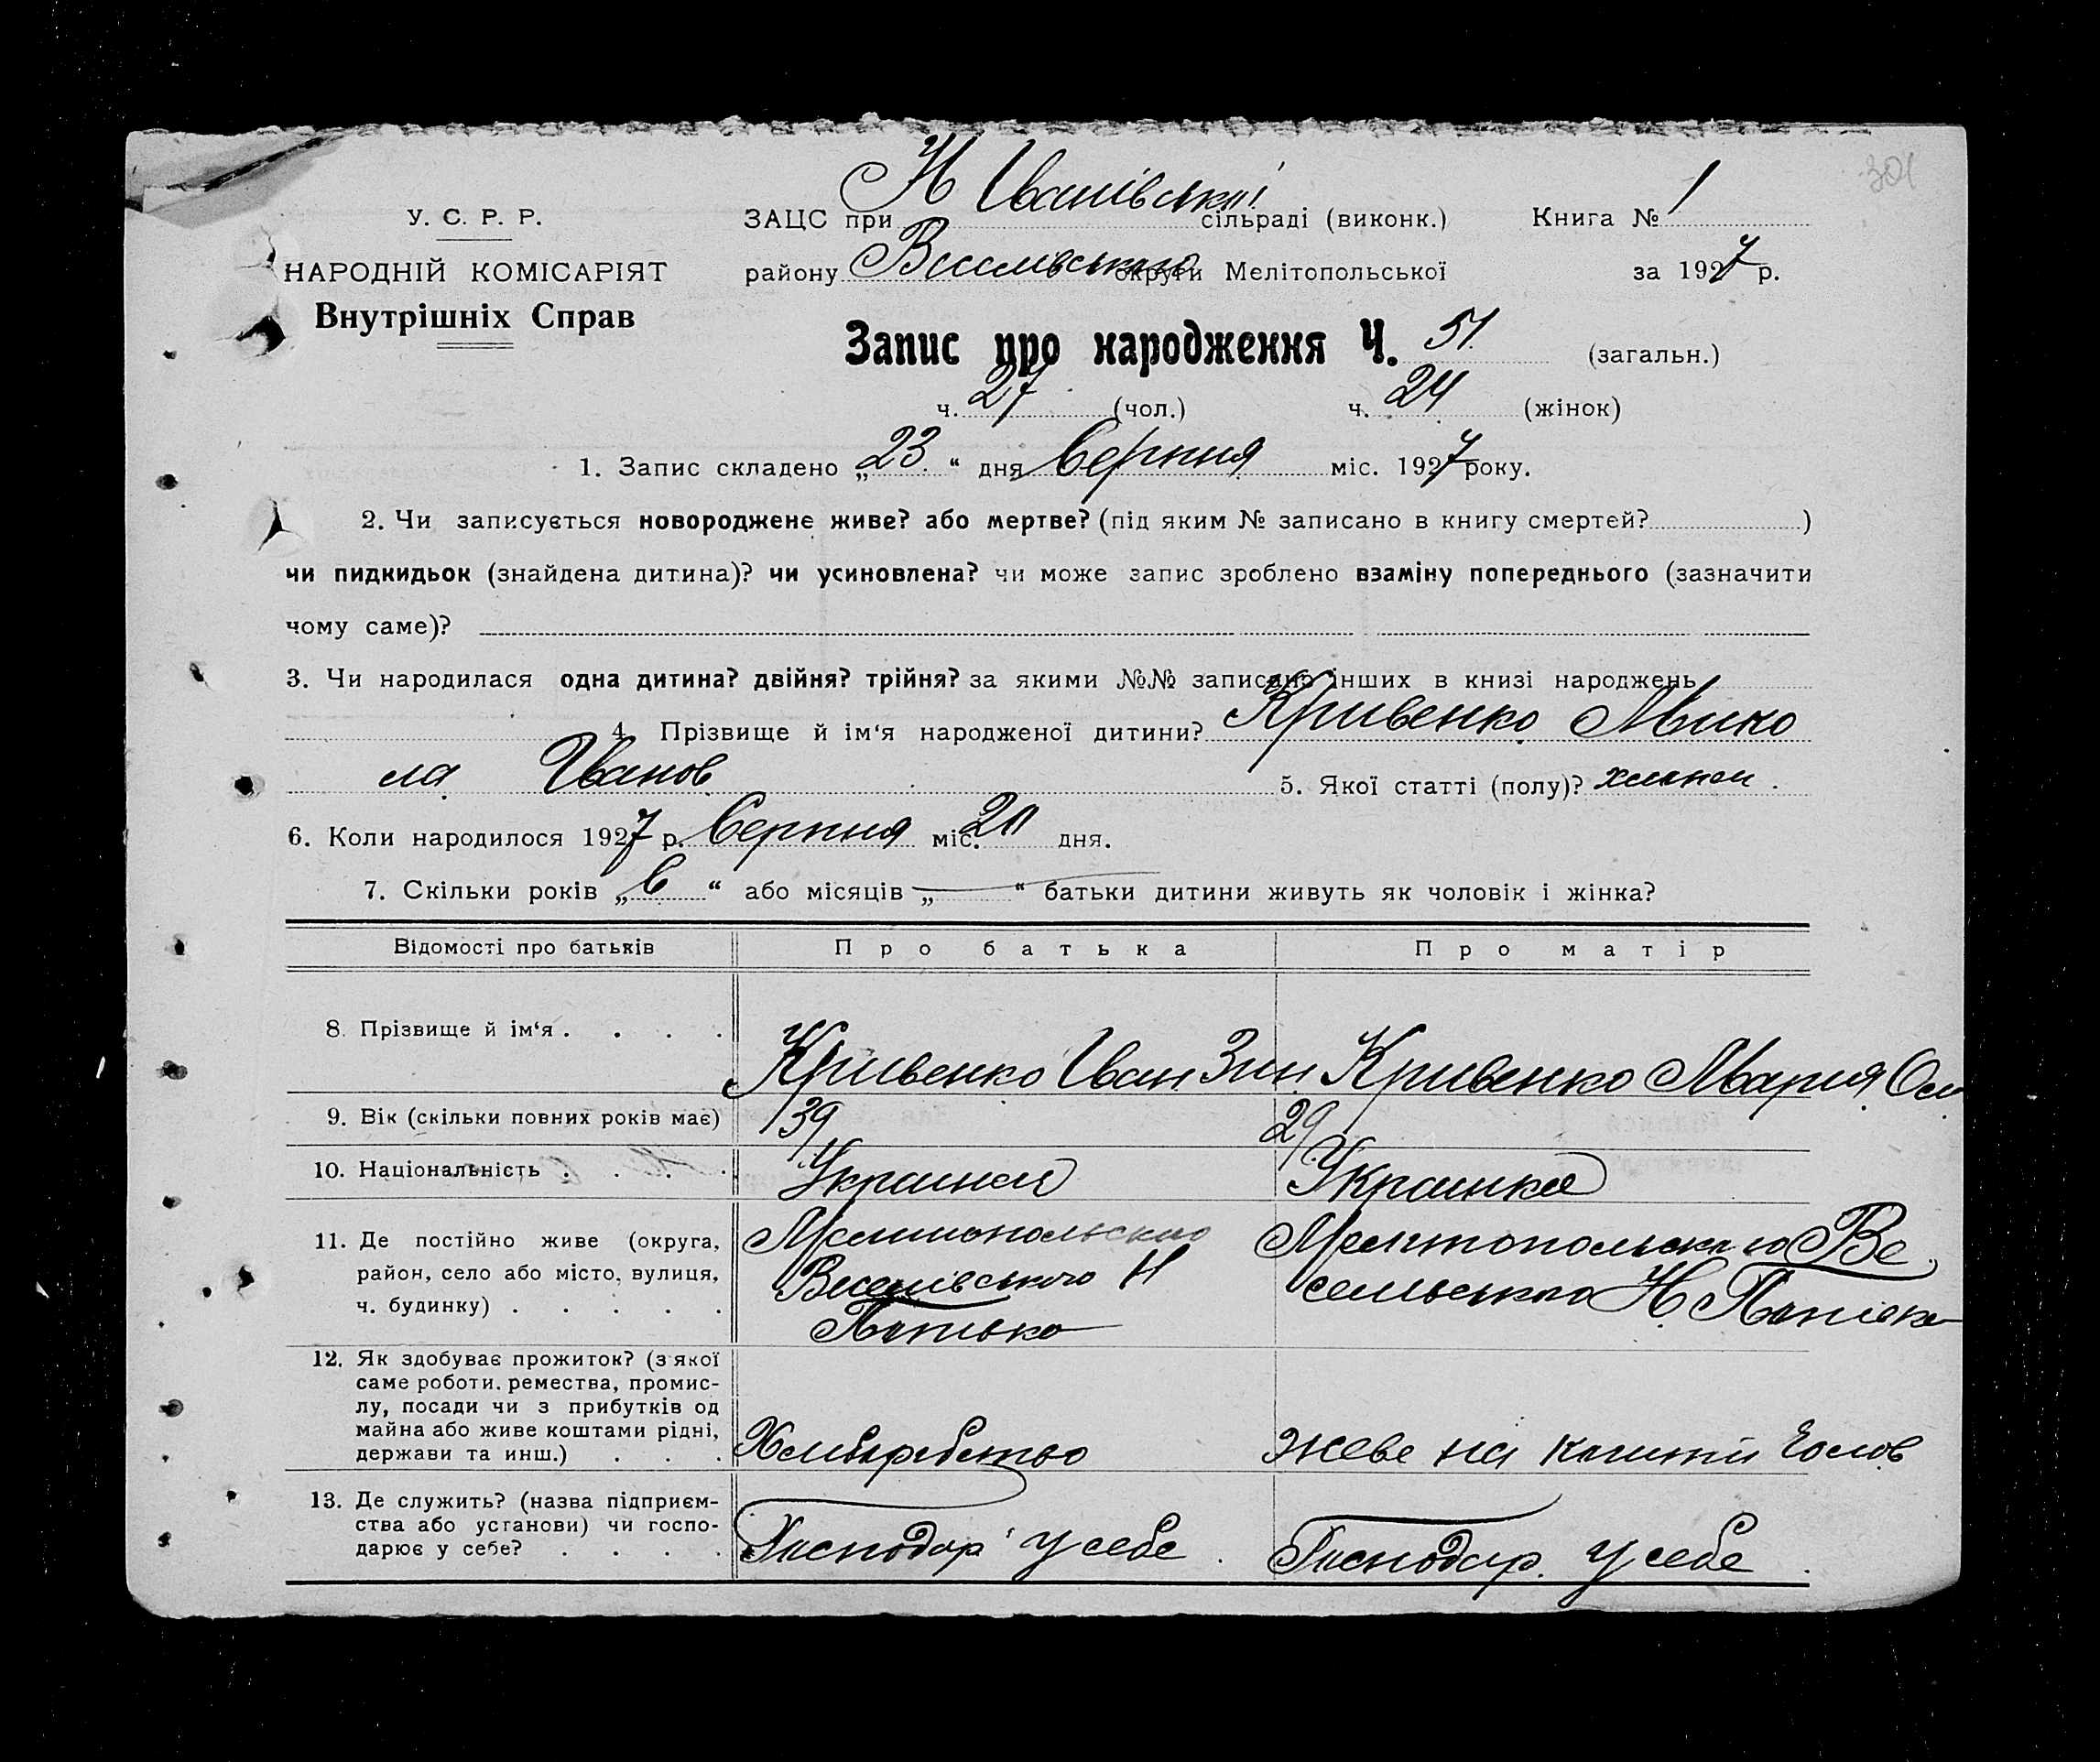 301
Н Іванівській
У. С. Р. Р. ЗАЦС при сільраді (виконк.) Книга № 1
НАРОДНІЙ КОМІСАРІЯТ району Веселівського округи Мелітопольської за 1927 р.
Внутрішніх Справ
Запис про народження Ч. 51 (загальн.)
ч. 27 (чол.) ч. 24 (жінок)
1. Запис складено „23“ дня Серпня міс. 1927 року.
2. Чи записується новороджене живе? або мертве? (під яким № записано в книгу смертей? )
чи пидкидьок (знайдена дитина)? чи усиновлена? чи може запис зроблено взаміну попереднього (зазначити
чому саме)?
3. Чи народилася одна дитина? двійня? трійня? за якими №№ записано інших в книзі народжень
4. Прізвище й ім‘я народженої дитини? Кривенко Мико
ла Іванов 5. Якої статті (полу)? хлопец
6. Коли народилося 1927 р. Серпня міс. 20 дня.
7. Скільки років „6“ або місяців „—“ батьки дитини живуть як чоловік і жінка?
Відомості про батьків Про батька Про матір
8. Прізвище й ім‘я . . . . Кривенко Іван Зин Кривенко Мария
9. Вік (скільки повних років має) 39 29
10. Національність . . . . Украинец Украинка
11. Де постійно живе (округа, Мелитопольского Мелитопольского Ве
район, село або місто, вулиця, Веселівського Н сельського Н
ч. будинку) . . . . .
12. Як здобуває прожиток? (з якої
саме роботи, ремества, промис-
лу, посади чи з прибутків од
майна або живе коштами рідні,
держави та инш.) . . . Хлиборобство живе на кошти Чолов
13. Де служить? (назва підприєм-
ства або установи) чи госпо-
дарює у себе? . . . . Господар у себе Господар. у себе